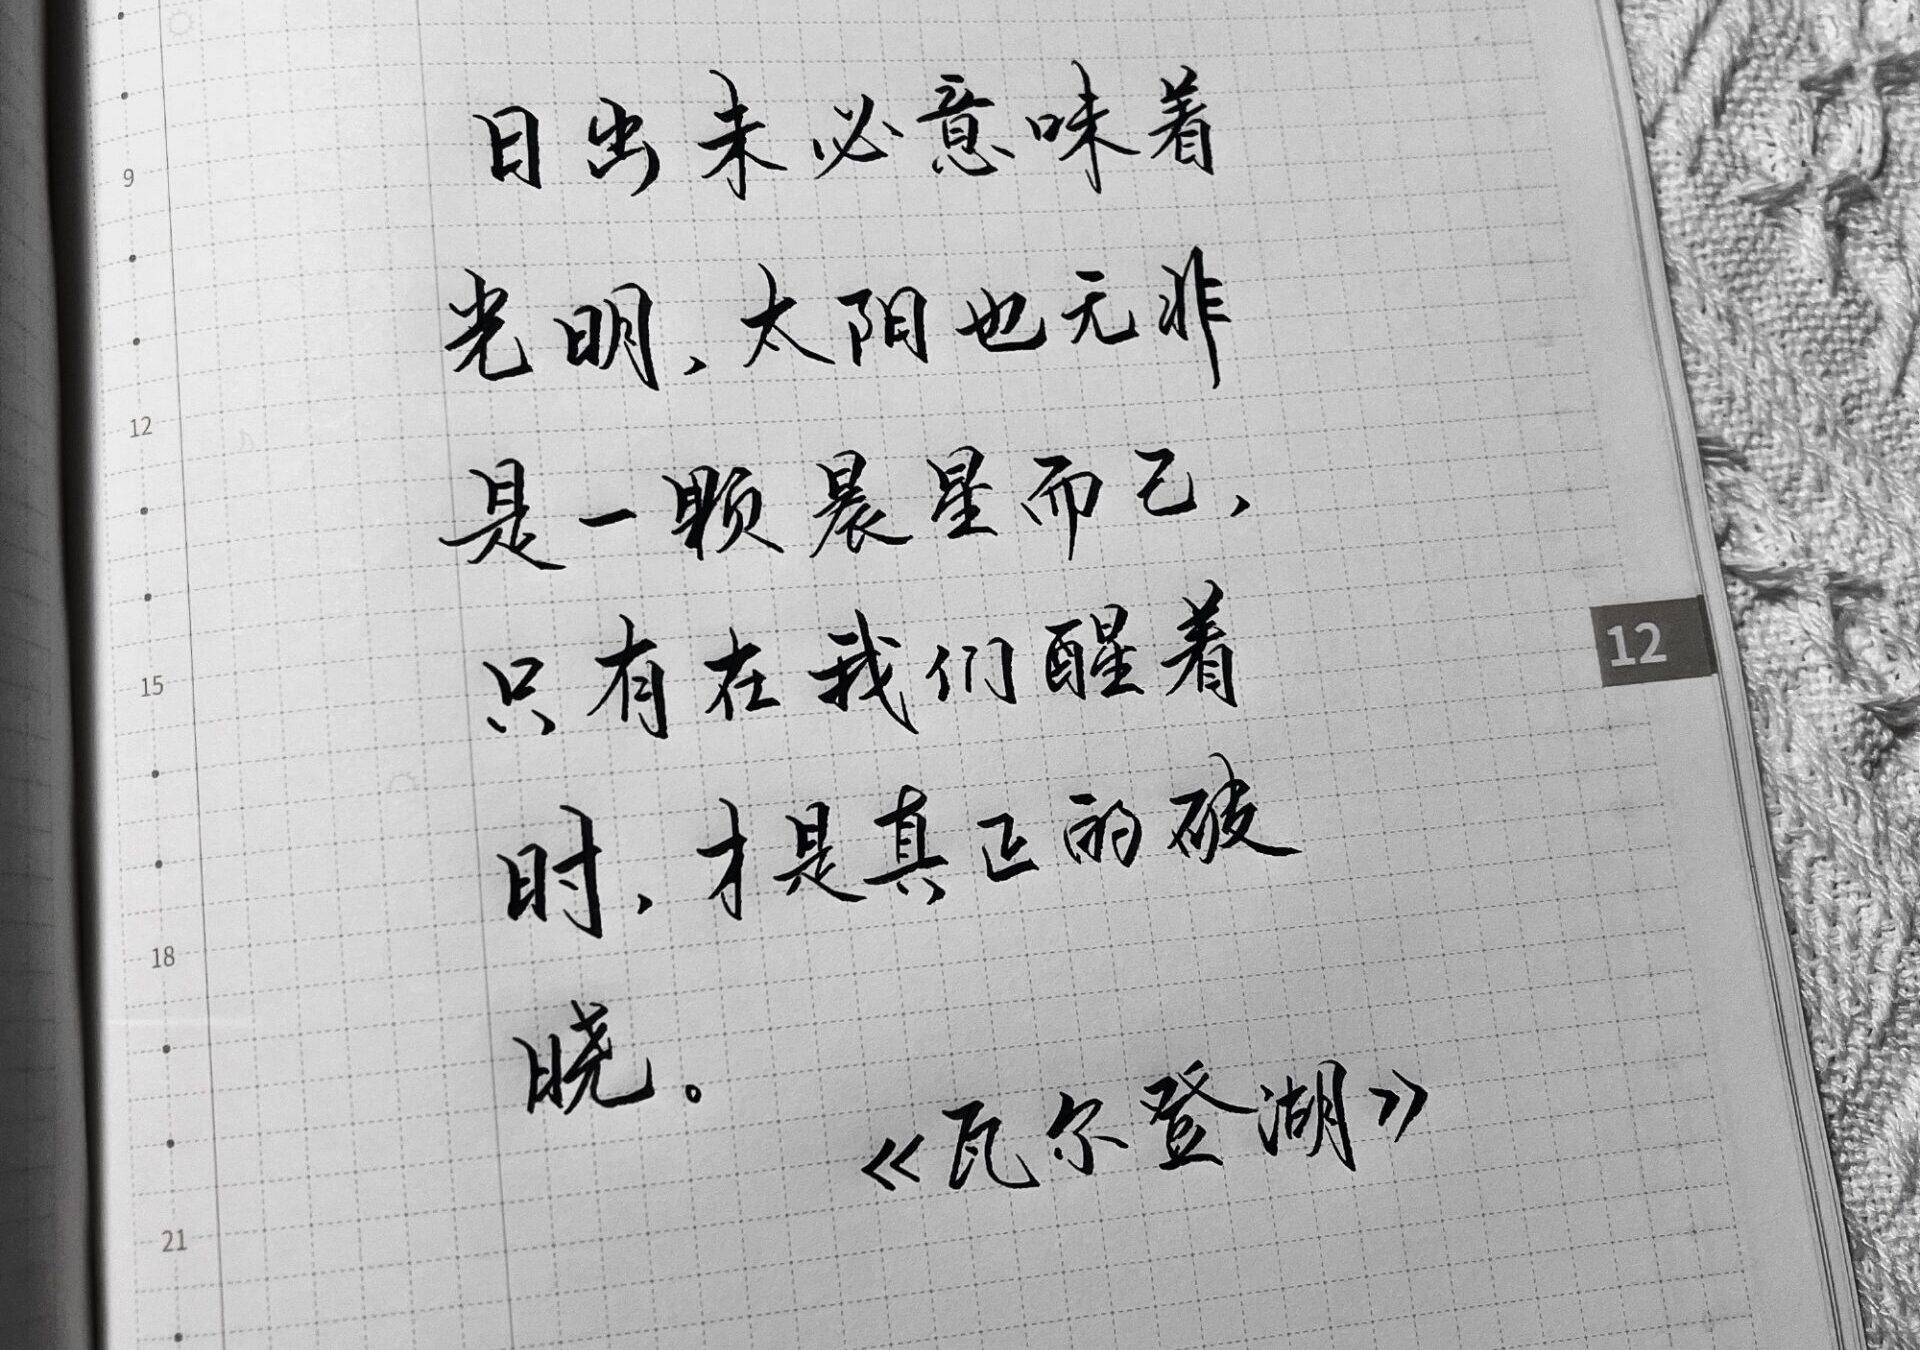 日出未必意味着
9
光明，太阳也无非
12
是一颗晨星而已，
只有在我们醒着
12
15
时，才是真正的破
18
晓。
《瓦尔登湖》
21